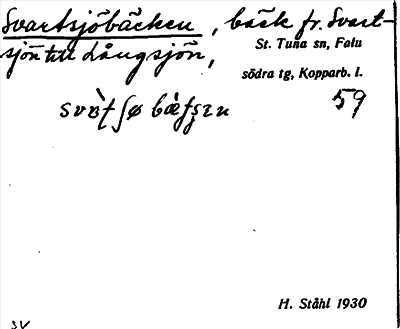 Svartsjöbäcken, bäck fr. Svart-
sjön till Långsjön,
St. Tuna sn, Falu
södra tg, Kopparb. l.
59
H. Ståhl 1930